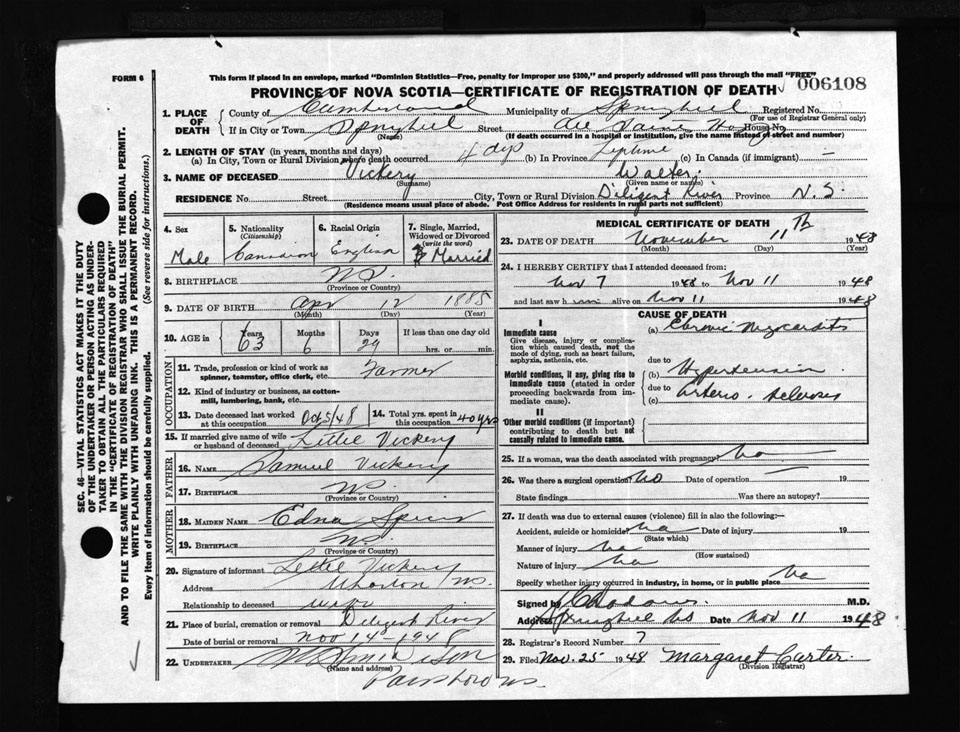 FORM 6
This form if placed in an envelope, marked "Dominion Statistics—Free, penalty for improper use $300," and properly addressed will pass through the mail "FREE"
PROVINCE OF NOVA SCOTIA—CERTIFICATE OF REGISTRATION OF DEATH 006108
1. PLACE OF DEATH
County of Cumberland Municipality of Springhill Registered No.
(For use of Registrar General only)
If in City or Town Springhill Street All Saints House No.
(Name) (If death occurred in a hospital or institution, give the name instead of street and number)
2. LENGTH OF STAY (in years, months and days)
(a) In City, Town or Rural Division where death occurred 4 days (b) In Province Lifetime (c) In Canada (if immigrant) —
3. NAME OF DECEASED Vickery Walter
(Surname) (Given name or names)
RESIDENCE No. Street City, Town or Rural Division Diligent River Province N.S.
(Residence means usual place of abode. Post Office Address for residents in rural parts not sufficient)
4. Sex Male
5. Nationality (Citizenship) Canadian
6. Racial Origin English
7. Single, Married, Widowed or Divorced (write the word) Married
8. BIRTHPLACE N.S.
(Province or Country)
9. DATE OF BIRTH Apr 12 1885
(Month) (Day) (Year)
10. AGE in Years 63 Months 6 Days 29 If less than one day old hrs. or min.
OCCUPATION
11. Trade, profession or kind of work as spinner, teamster, office clerk, etc. Farmer
12. Kind of industry or business, as cotton-mill, lumbering, bank, etc.
13. Date deceased last worked at this occupation Oct 5/48
14. Total yrs. spent in this occupation 40 yrs
15. If married give name of wife or husband of deceased Lettie Vickery
FATHER
16. NAME Samuel Vickery
17. BIRTHPLACE N.S.
(Province or Country)
MOTHER
18. MAIDEN NAME Edna Spicer
19. BIRTHPLACE N.S.
(Province or Country)
20. Signature of informant Lettie Vickery
Address Wharton N.S.
Relationship to deceased wife
21. Place of burial, cremation or removal Diligent River
Date of burial or removal Nov 14-1948
22. UNDERTAKER & Son
(Name and address)
Parrsboro N.S.
MEDICAL CERTIFICATE OF DEATH
23. DATE OF DEATH November 11th 1948
(Month) (Day) (Year)
24. I HEREBY CERTIFY that I attended deceased from:
Nov 7 1948 to Nov 11 1948
and last saw h alive on Nov 11 1948
CAUSE OF DEATH
I
Immediate cause
Give disease, injury or complication which caused death, not the mode of dying, such as heart failure, asphyxia, asthenia, etc.
(a) Chronic Myocarditis
due to
Morbid conditions, if any, giving rise to immediate cause (stated in order proceeding backwards from immediate cause).
(b) Hypertension
due to
(c) Arterio-Sclerosis
II
Other morbid conditions (if important) contributing to death but not causally related to immediate cause.
25. If a woman, was the death associated with pregnancy? No
26. Was there a surgical operation? No Date of operation 19
State findings Was there an autopsy?
27. If death was due to external causes (violence) fill in also the following:—
Accident, suicide or homicide? No Date of injury 19
(State which)
Manner of injury No
(How sustained)
Nature of injury No
Specify whether injury occurred in industry, in home, or in public place No
Signed by M.D.
Address Springhill NS Date Nov 11 1948
28. Registrar's Record Number 7
29. Filed Nov. 25 1948 Margaret Carter.
(Division Registrar)
SEC. 46—VITAL STATISTICS ACT MAKES IT THE DUTY
OF THE UNDERTAKER OR PERSON ACTING AS UNDERTAKER TO OBTAIN ALL THE PARTICULARS REQUIRED
IN THE "CERTIFICATE OF REGISTRATION OF DEATH"
AND TO FILE THE SAME WITH THE DIVISION REGISTRAR WHO SHALL ISSUE THE BURIAL PERMIT.
WRITE PLAINLY WITH UNFADING INK. THIS IS A PERMANENT RECORD.
Every item of information should be carefully supplied. (See reverse side for instructions.)